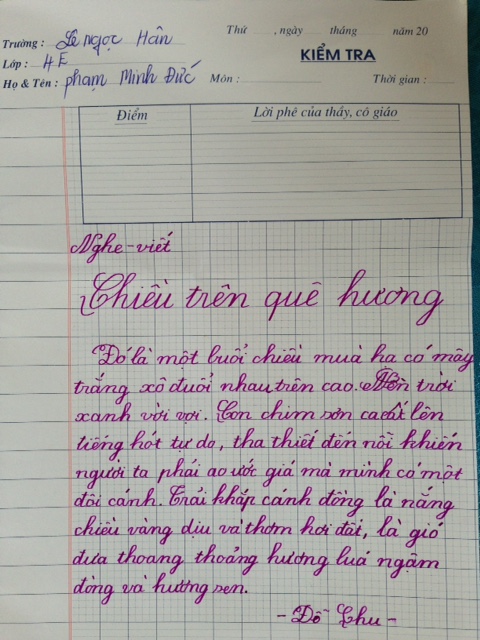 Thứ , ngày tháng năm 20
Trường : Lê Ngọc Hân
KIỂM TRA
Lớp : 4E
Họ & Tên : Phạm Minh Đức Môn : Thời gian :
Điểm Lời phê của thầy, cô giáo
Nghe-viết
Chiều trên quê hương
Đó là một buổi chiều mùa hạ có mây
trắng xô đuổi nhau trên cao. Nền trời
xanh vời vợi. Con chim sơn ca cất lên
tiếng hót tự do, tha thiết đến nỗi khiến
người ta phải ao ước giá mà mình có một
đôi cánh. Trải khắp cánh đồng là nắng
chiều vàng dịu và thơm hơi đất, là gió
đưa thoang thoảng hương lúa ngậm
đòng và hương sen.
- Đỗ Chu -